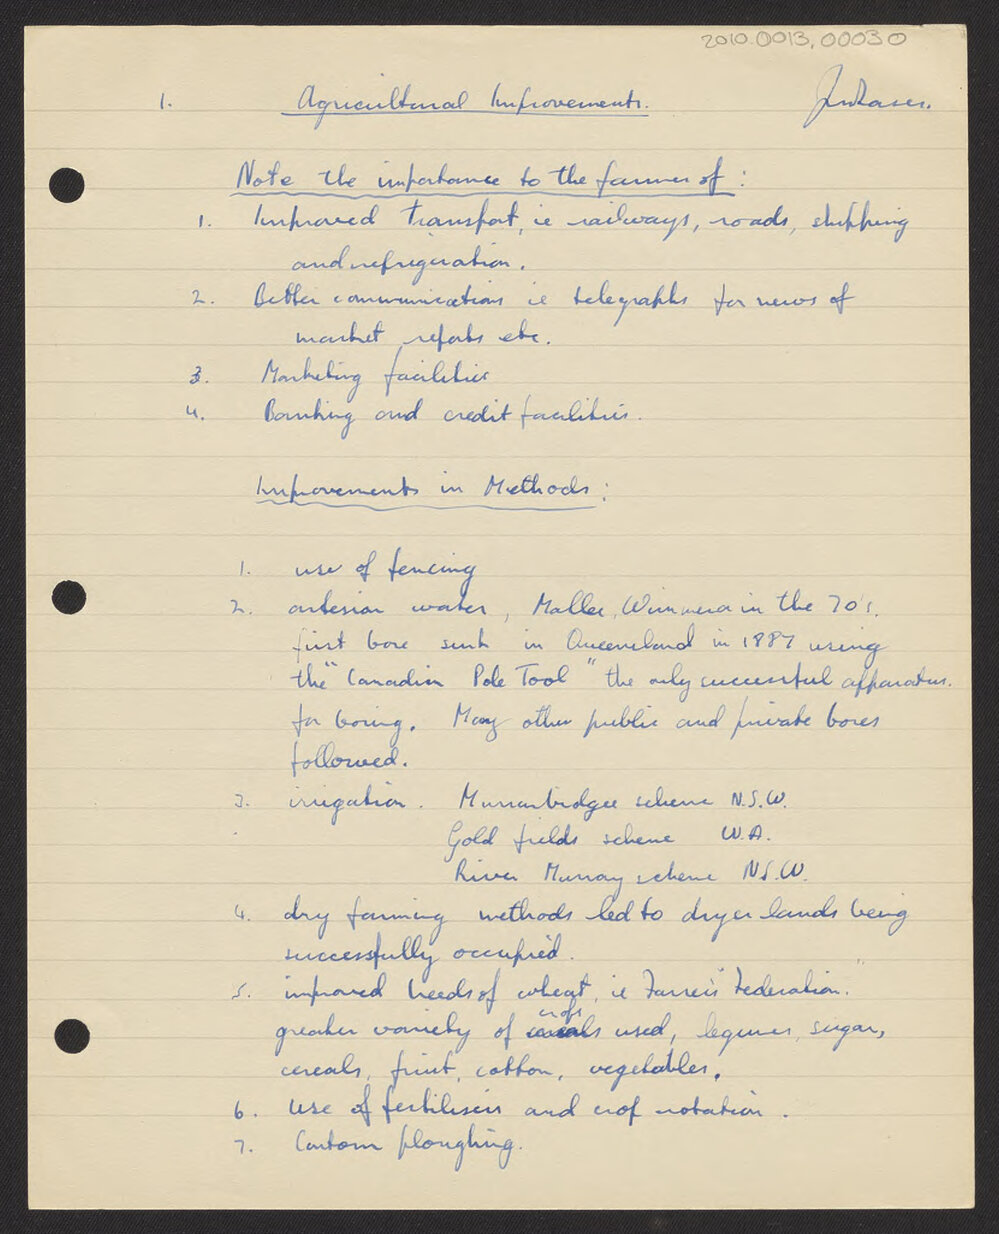 2010.0013.00030
1. Agricultural Improvements.
Note the importance to the farmer of:
1. Improved transport, ie railways, roads, shipping
and refrigeration.
2. Better communications ie telegraphs for news of
market reports etc.
3. Marketing facilities
4. Banking and credit facilities.
Improvements in Methods:
1. use of fencing
2. artesian water, Mallee, Wimmera in the 70's.
first bore sunk in Queensland in 1887 using
the "Canadian Pole Tool" the only successful apparatus.
for boring. May other public and private bores
followed.
3. irrigation. Murrumbidgee scheme N.S.W.
Gold fields scheme W.A.
River Murray scheme N.S.W.
4. dry farming methods led to dryer lands being
successfully occupied.
5. improved breeds of wheat, ie Farrer's "Federation."
greater variety of crops used, legumes, sugar,
cereals, fruit, cotton, vegetables.
6. Use of fertilisers and crop rotation.
7. Contour ploughing.